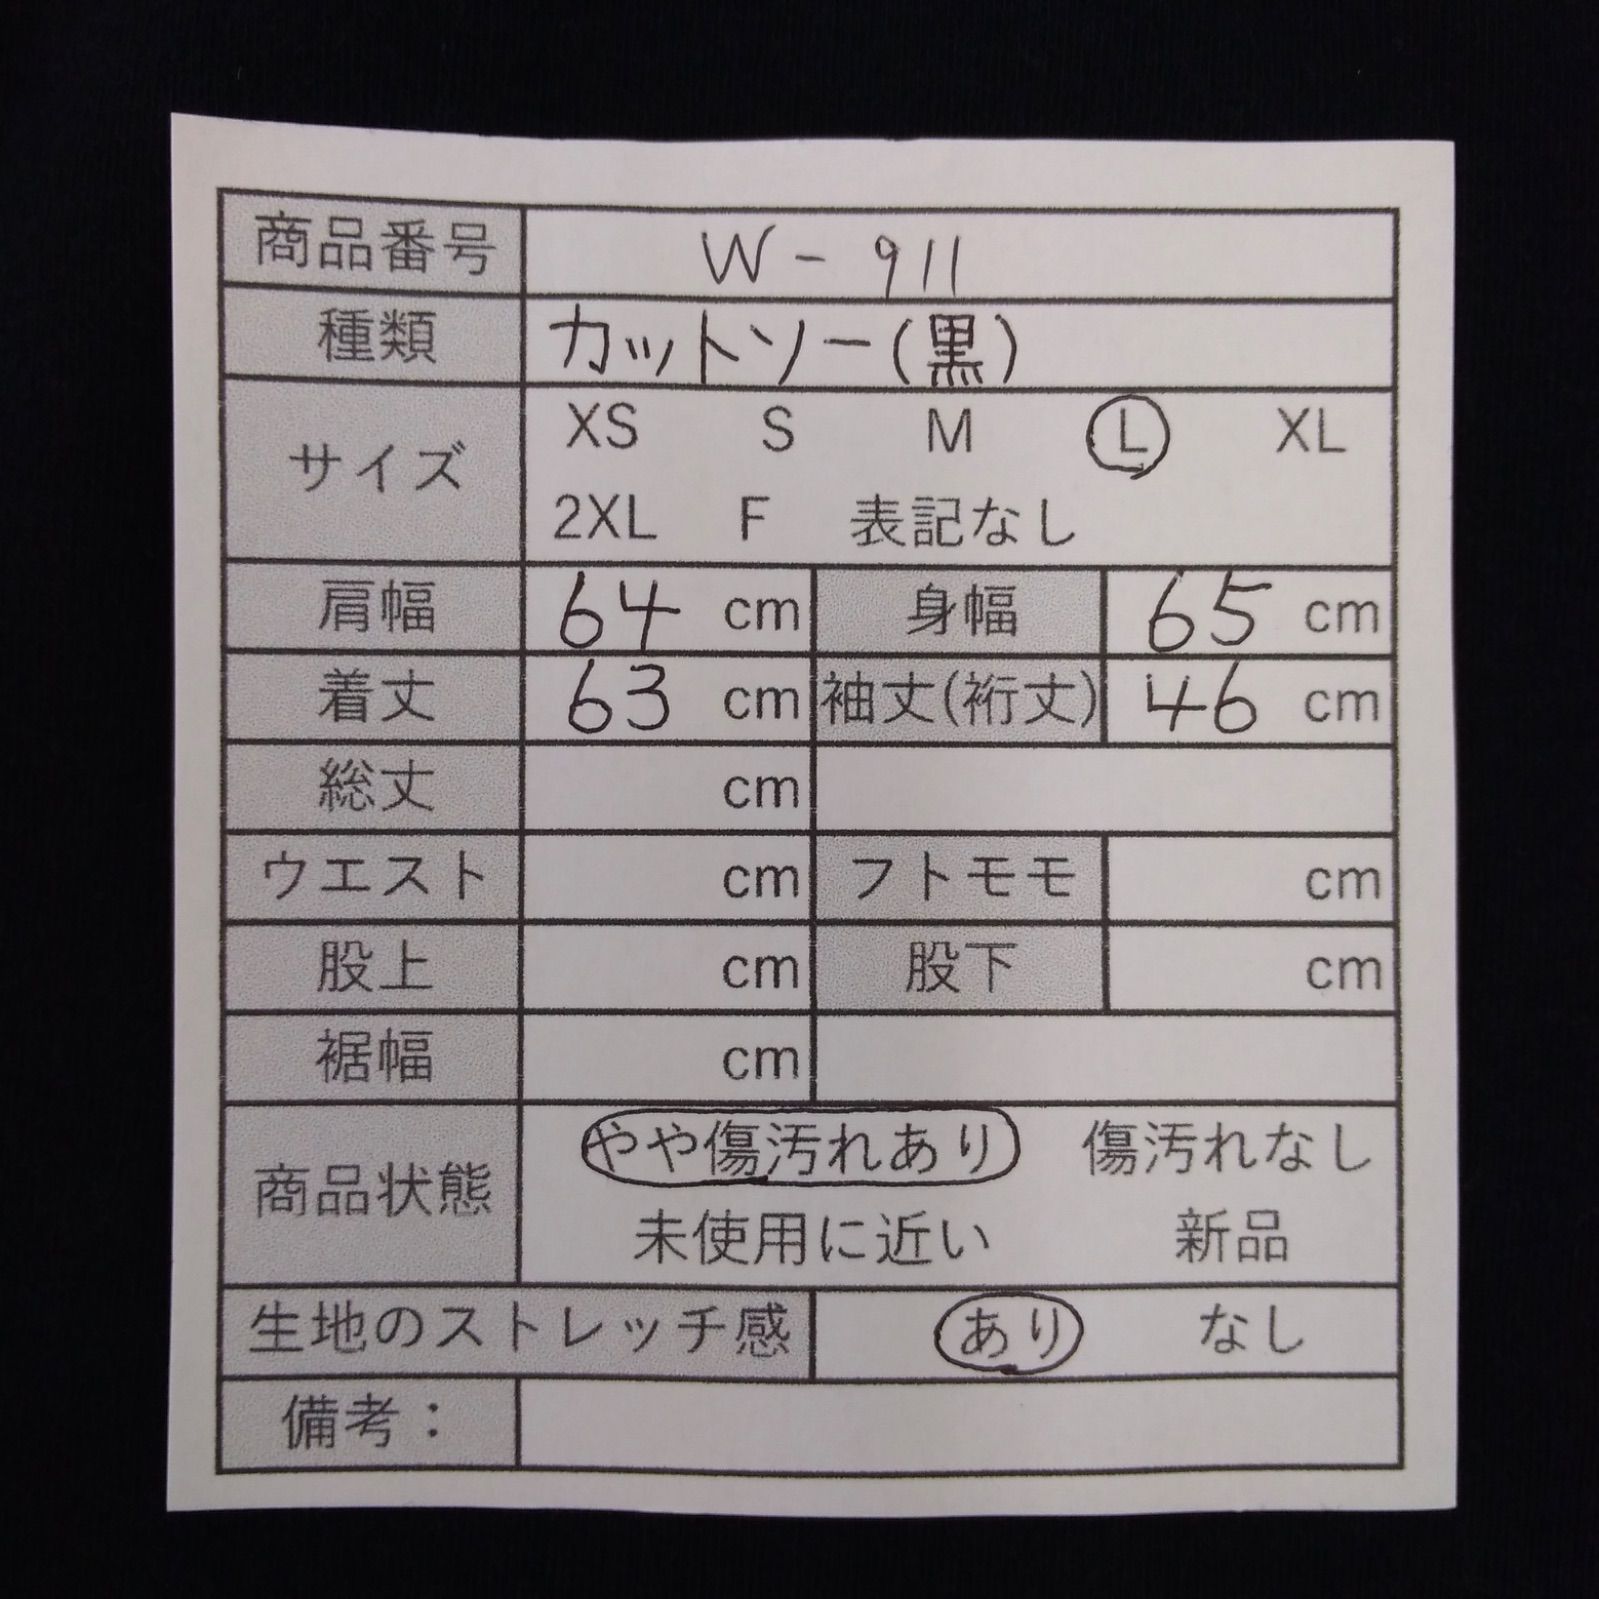 商品番号 W-911
種類 カットソー(黒)
サイズ XS S M L XL
2XL F 表記なし
肩幅 64 cm 身幅 65 cm
着丈 63 cm 袖丈(裄丈) 46 cm
総丈 cm
ウエスト cm フトモモ cm
股上 cm 股下 cm
裾幅 cm
商品状態 やや傷汚れあり 傷汚れなし
未使用に近い 新品
生地のストレッチ感 あり なし
備考：